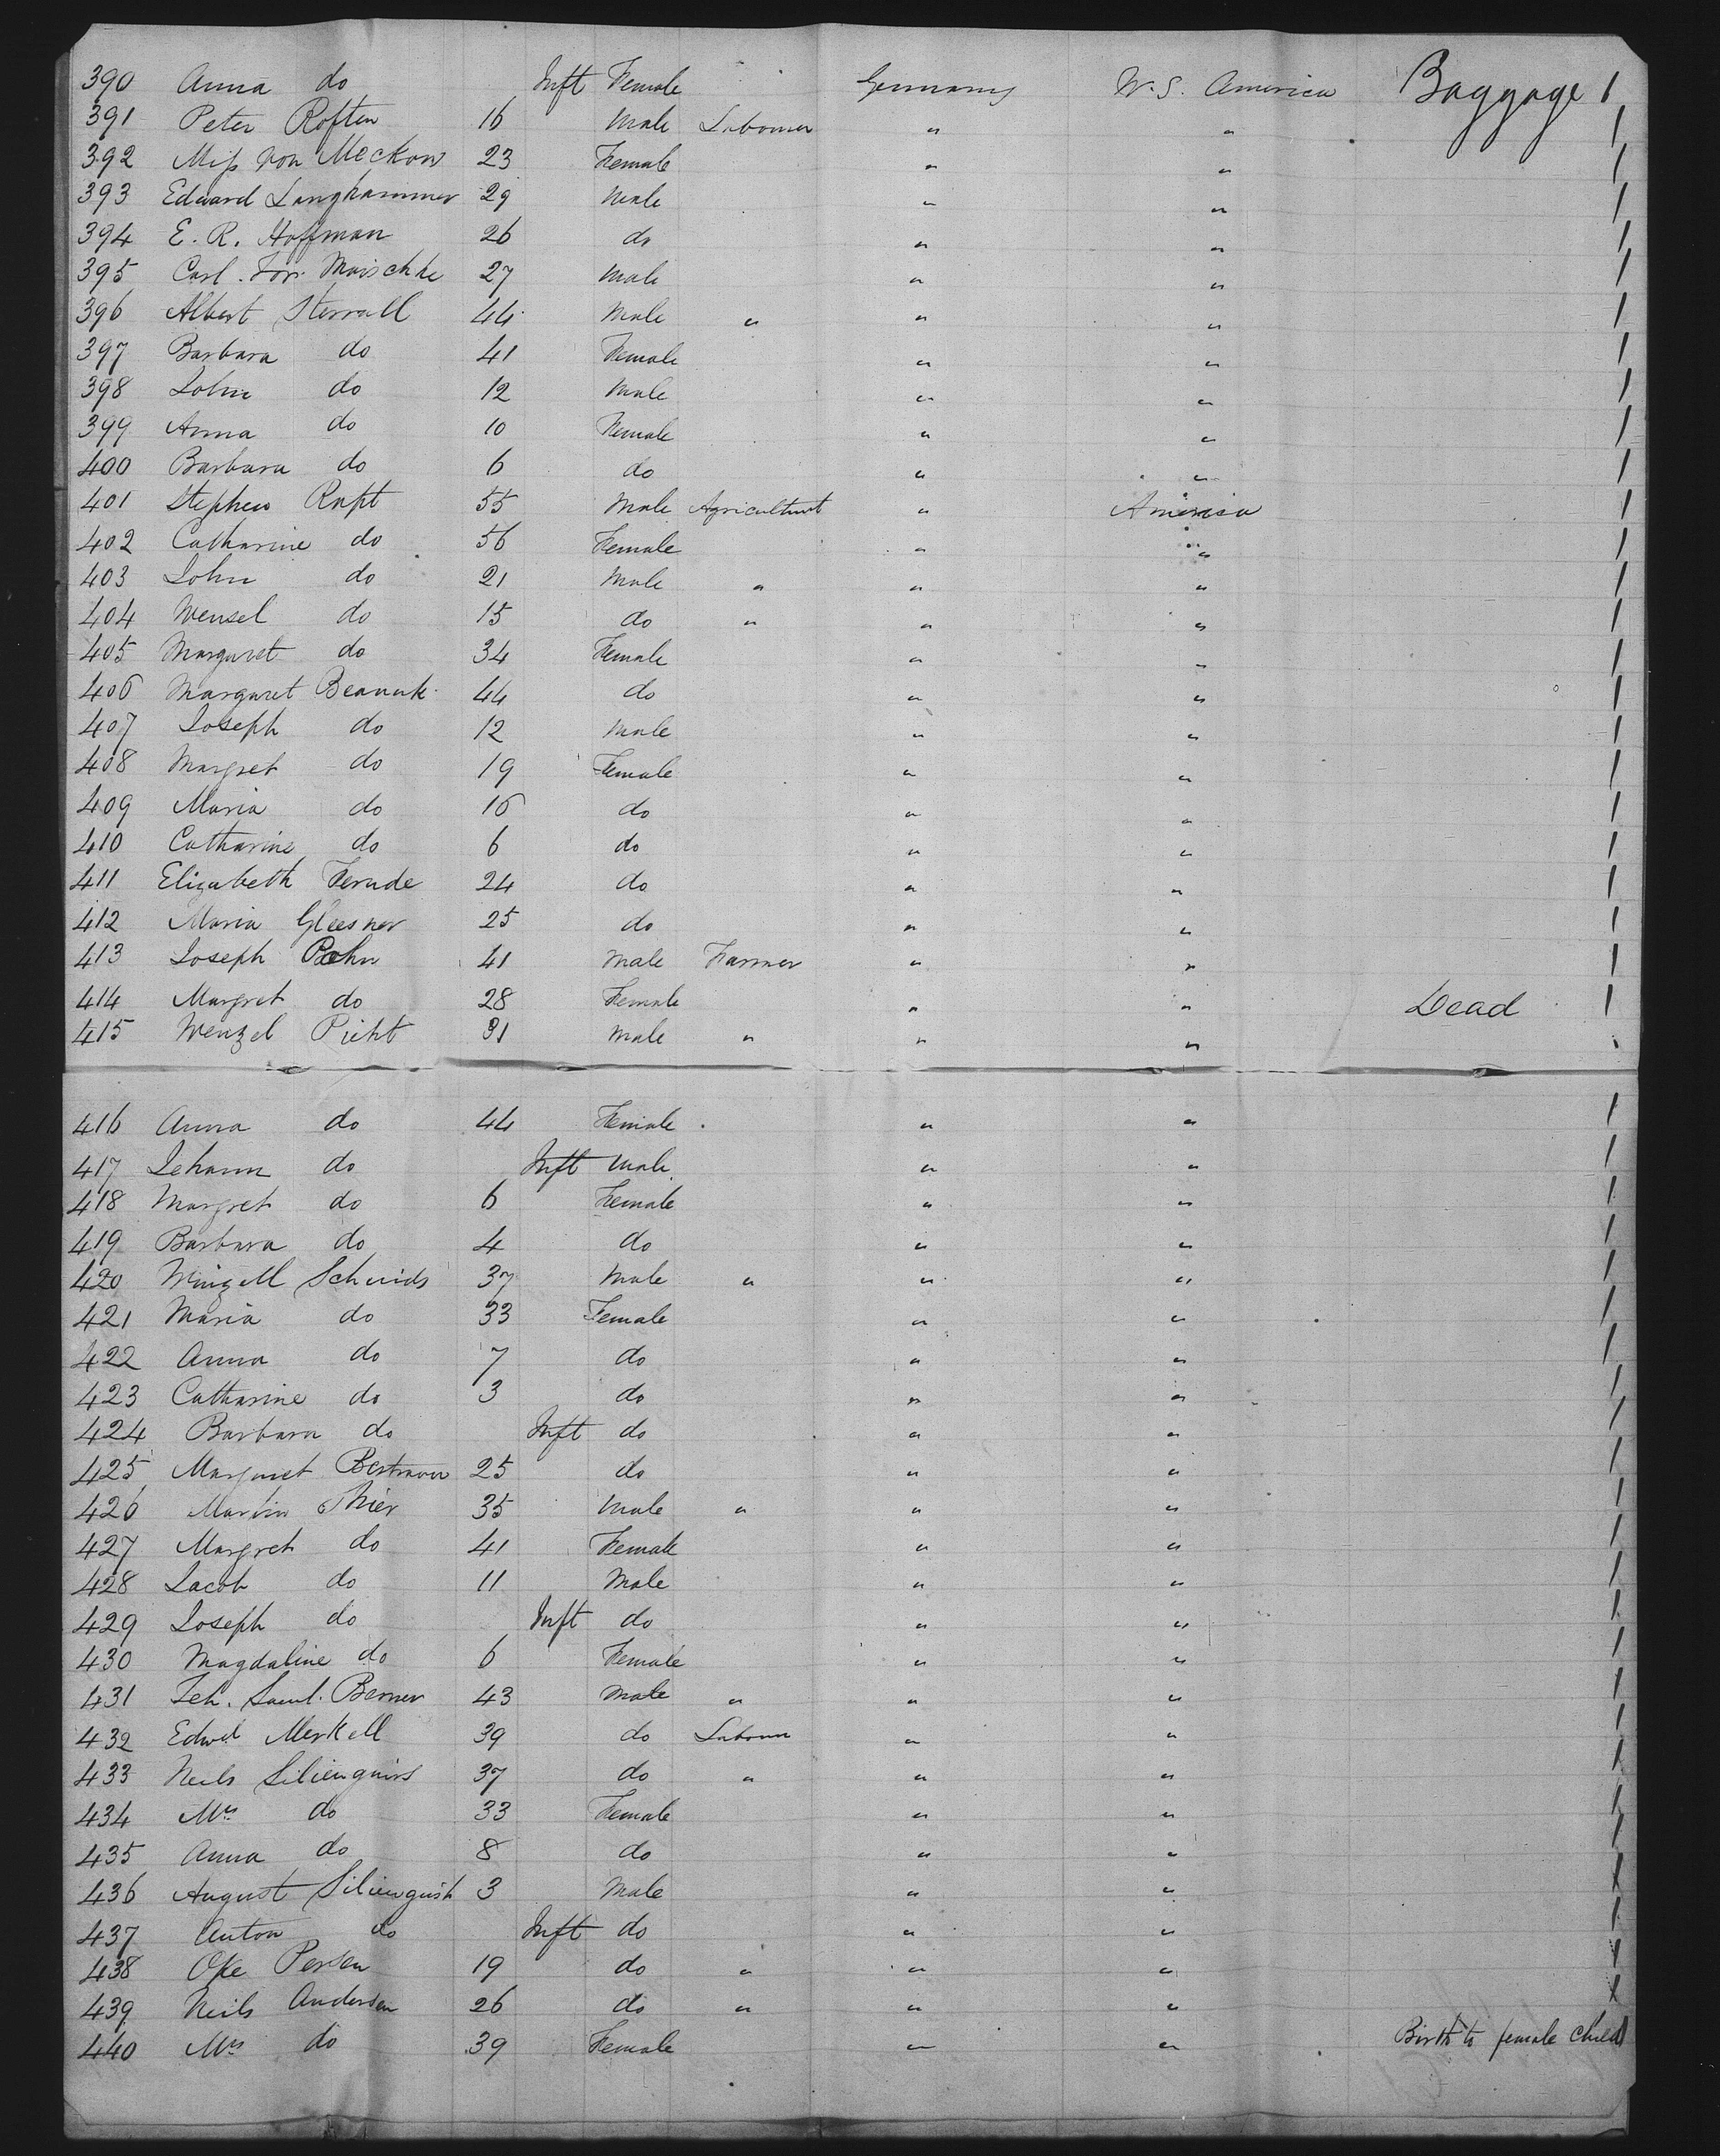 390 Anna do Inft Female Germany W.S. America Baggage 1
391 Peter Roften 16 Male Labourer " " 1
392 Miss von Meckow 23 Female " " 1
393 Edward Langhammer 29 Male " " 1
394 E. R. Hoffman 26 do " " 1
395 Carl. Maischke 27 Male " " 1
396 Albert Sterrall 44 Male " " " 1
397 Barbara do 41 Female " " 1
398 John do 12 Male " " 1
399 Anna do 10 Female " " 1
400 Barbara do 6 do " " 1
401 Stephen Rapt 55 Male Agriculturt " America 1
402 Catharine do 56 Female " " 1
403 John do 21 Male " " " 1
404 Wensel do 15 do " " " 1
405 Margaret do 34 Female " " 1
406 Margaret 44 do " " 1
407 Joseph do 12 Male " " 1
408 Margret do 19 Female " " 1
409 Maria do 16 do " " 1
410 Catharine do 6 do " " 1
411 Elizabeth Ferude 24 do " " 1
412 Maria Gleesner 25 do " " 1
413 Joseph 41 Male Farmer " " 1
414 Margret do 28 Female " " Dead 1
415 Wenzel Picht 31 Male " " "
416 Anna do 44 Female " " 1
417 Johann do Inft Male " " 1
418 Margret do 6 Female " " 1
419 Barbara do 4 do " " 1
420 Winzell Schmids 37 Male " " " 1
421 Maria do 33 Female " " 1
422 Anna do 7 do " " 1
423 Catharine do 3 do " " 1
424 Barbara do Inft do " " 1
425 Margaret 25 do " " 1
426 Martin Thier 35 Male " " " 1
427 Margret do 41 Female " " 1
428 Jacob do 11 Male " " 1
429 Joseph do Inft do " " 1
430 Magdaline do 6 Female " " 1
431 Joh. Saml. Berner 43 Male " " " 1
432 Edwd Merkell 39 do Labour " " 1
433 Neils Silienquirs 37 do " " " 1
434 Mrs do 33 Female " " 1
435 Anna do 8 do " " 1
436 August Silienquish 3 Male " " X
437 Anton do Inft do " " 1
438 Oke Persen 19 do " " " 1
439 Neils Andersen 26 do " " " X
440 Mrs do 39 Female " " Birth to female child